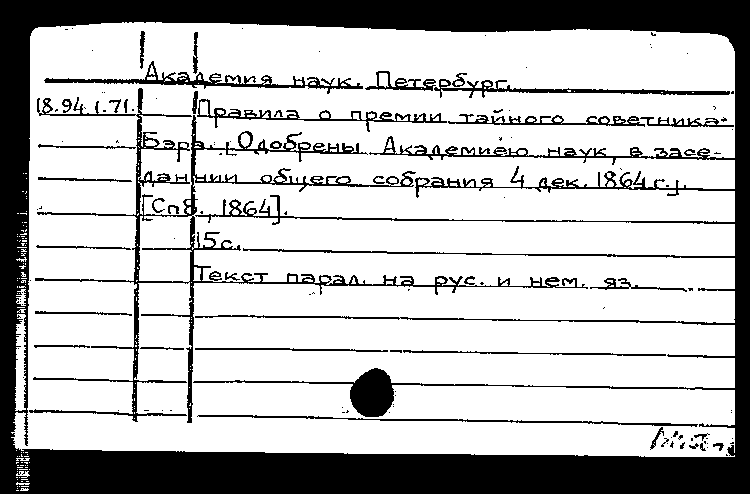 Академия наук. Петербург.
18.94.1.71. Правила о премии тайного советника
Бэра. [Одобрены Академиею наук, в засе-
даннии общего собрания 4 дек. 1864 г.].
[Спб., 1864].
15с.
Текст парал. на рус. и нем. яз.